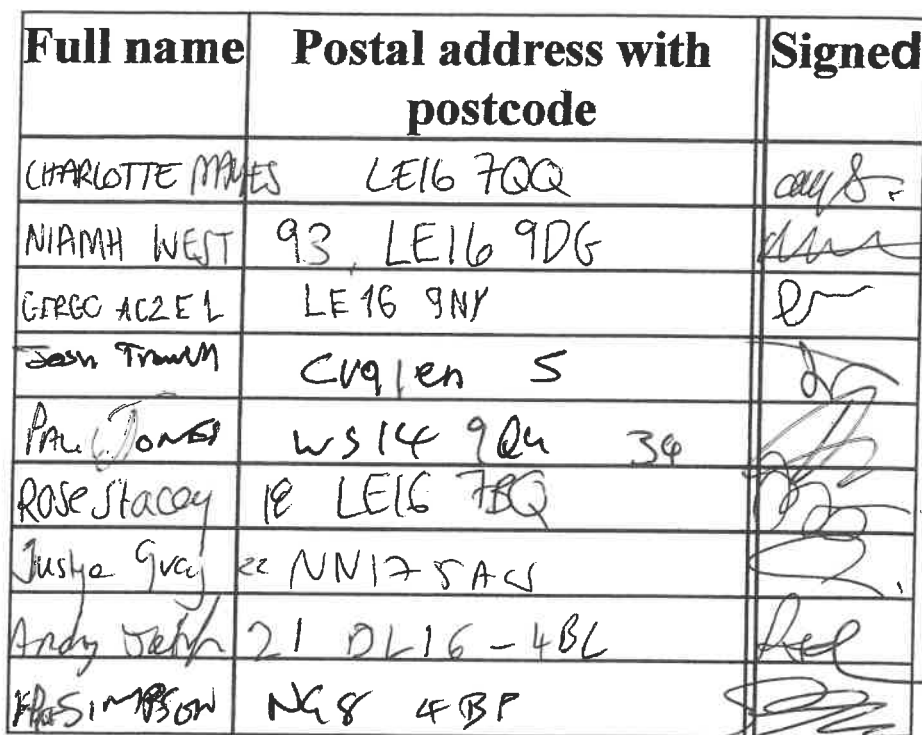 Full name Postal address with postcode Signed
CHARLOTTE MAYES LE16 7QQ
NIAMH WEST 93, LE16 9DG
GERGO ACZEL LE16 9NY
Josh
PAUL JONES WS14 9QU 34
Rose Stacey 18 LE16 7BQ
22 NN17 5AW
Andy 21 DL16-4BL
SIMPSON NG8 4BP